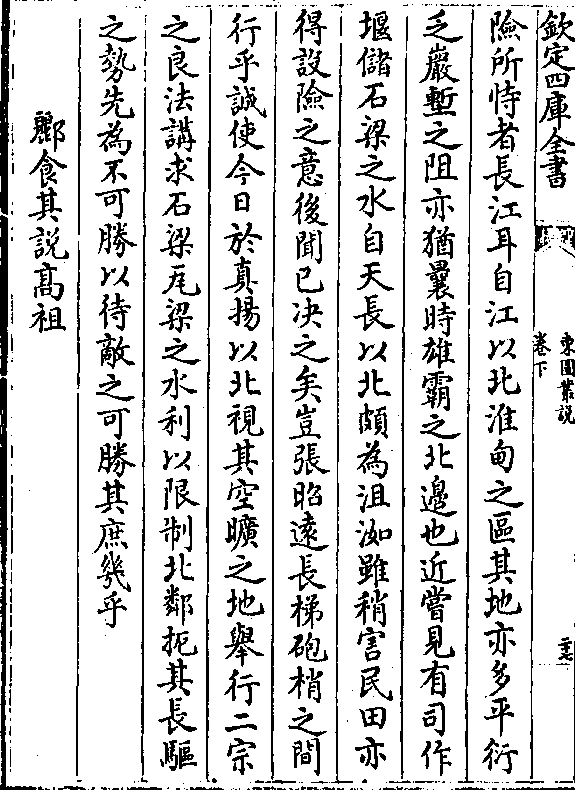 欽定四庫全書
東園叢說
卷下
險所恃者長江耳自江以北淮甸之區其地亦多平衍
乏巖塹之阻亦猶曩時雄霸之北邊也近嘗見有司作
堰儲石梁之水自天長以北頗為沮洳雖稍害民田亦
得設險之意後聞已決之矣豈張昭遠長梯砲梢之間
行乎誠使今日於真揚以北視其空曠之地舉行二宗
之良法講求石梁瓦梁之水利以限制北鄰扼其長驅
之勢先為不可勝以待敵之可勝其庶幾乎
酈食其說髙祖